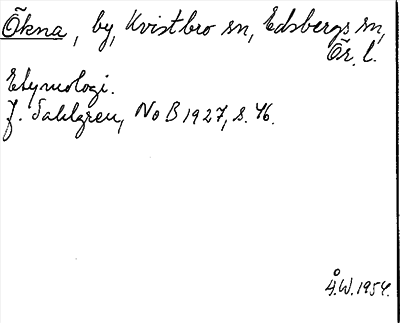 Ökna, by, Kvistbro sn, Edsbergs sn,
Ör. l.
Etymologi.
J. Sahlgren, NoB 1927, s. 46.
Å.W. 1954.